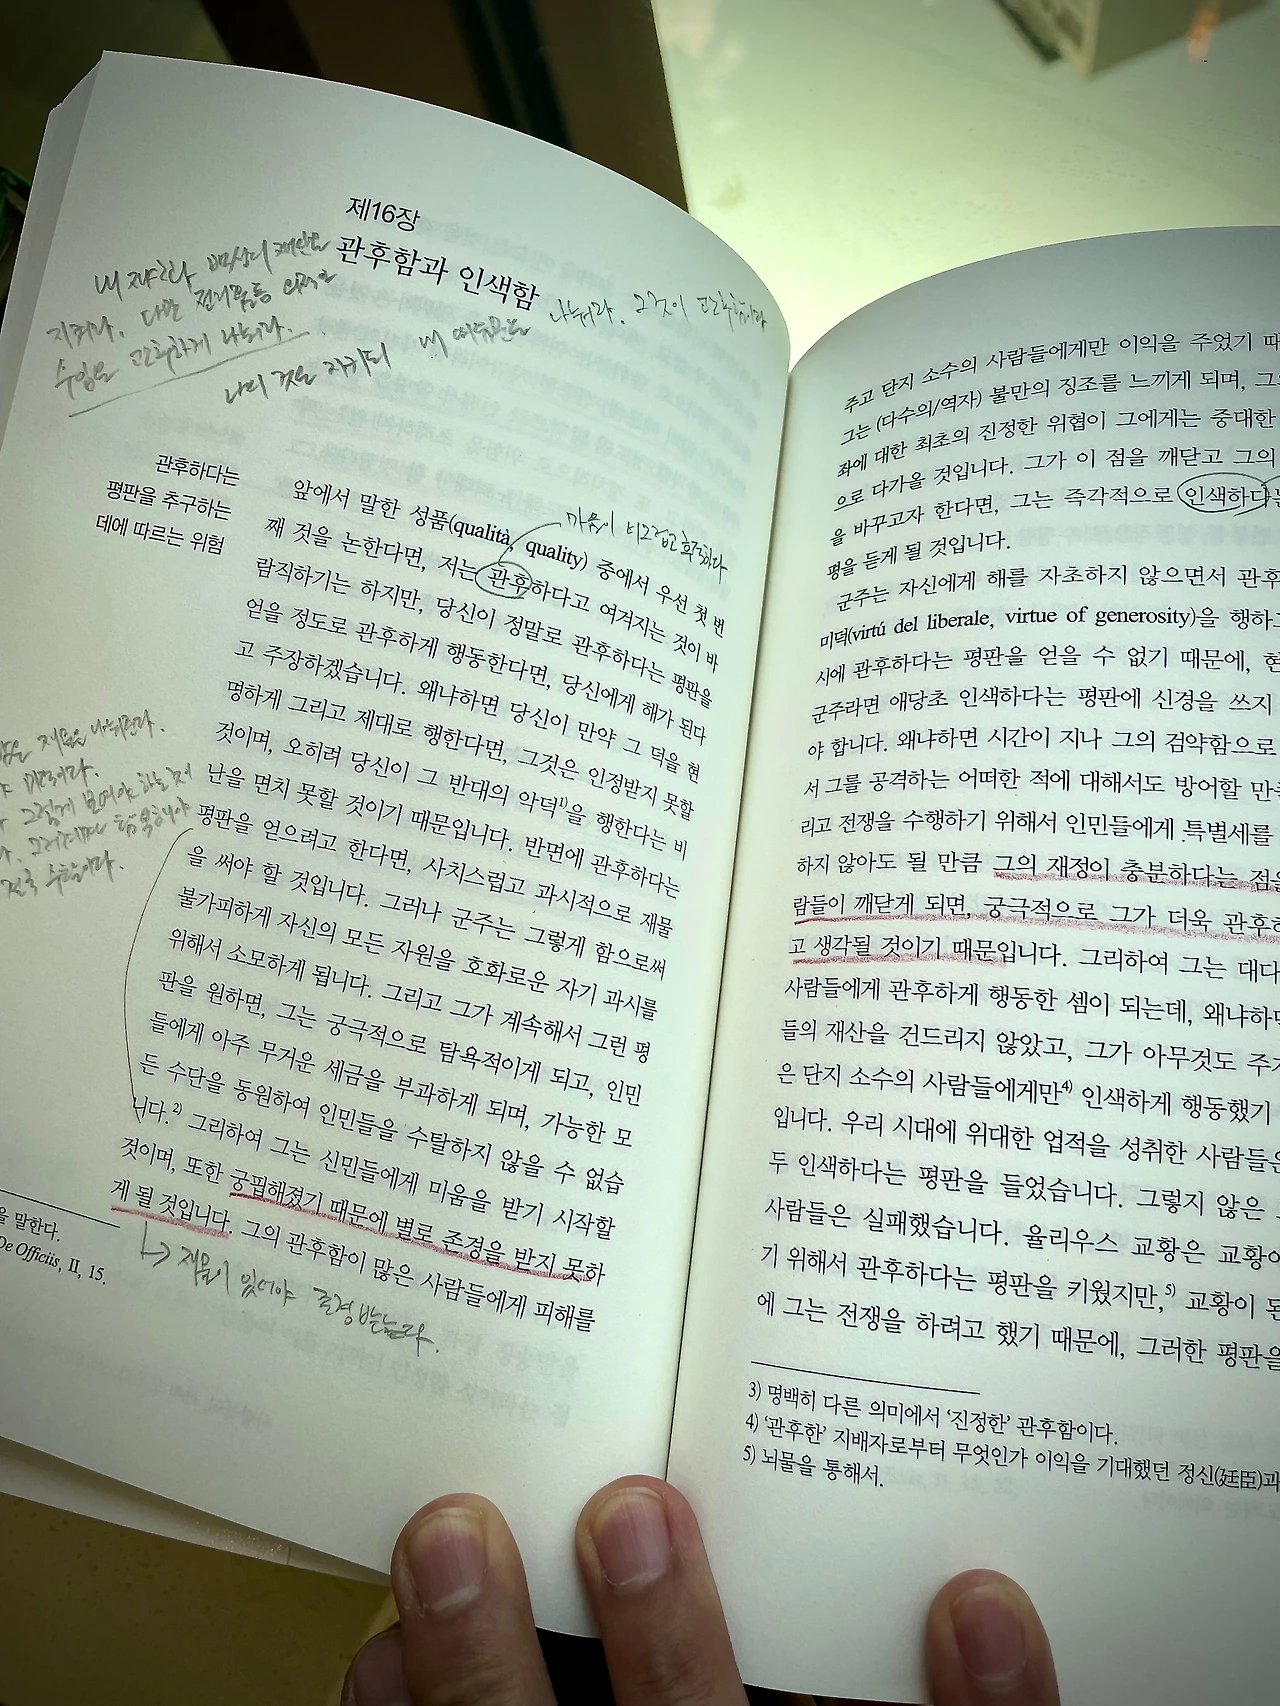 제16장
관후함과 인색함
지켜라. 다만 전리품등
수입은 관후하게 나눠라.
나의 것을 지키되
나눠라. 그것이 관후함이라
관후하다는
평판을 추구하는
데에 따르는 위험
마음이 너그럽고 후하다
앞에서 말한 성품(qualità, quality) 중에서 우선 첫 번
째 것을 논한다면, 저는 관후하다고 여겨지는 것이 바
람직하기는 하지만, 당신이 정말로 관후하다는 평판을
얻을 정도로 관후하게 행동한다면, 당신에게 해가 된다
고 주장하겠습니다. 왜냐하면 당신이 만약 그 덕을 현
명하게 그리고 제대로 행한다면, 그것은 인정받지 못할
것이며, 오히려 당신이 그 반대의 악덕1)을 행한다는 비
난을 면치 못할 것이기 때문입니다. 반면에 관후하다는
평판을 얻으려고 한다면, 사치스럽고 과시적으로 재물
을 써야 할 것입니다. 그러나 군주는 그렇게 함으로써
불가피하게 자신의 모든 자원을 호화로운 자기 과시를
위해서 소모하게 됩니다. 그리고 그가 계속해서 그런 평
판을 원하면, 그는 궁극적으로 탐욕적이게 되고, 인민
들에게 아주 무거운 세금을 부과하게 되며, 가능한 모
든 수단을 동원하여 인민들을 수탈하지 않을 수 없습
니다.2) 그리하여 그는 신민들에게 미움을 받기 시작할
것이며, 또한 궁핍해졌기 때문에 별로 존경을 받지 못하
게 될 것입니다. 그의 관후함이 많은 사람들에게 피해를
재물이 있어야 존경 받는다.
을 말한다.
De Officiis, II, 15.
주고 단지 소수의 사람들에게만 이익을 주었기 때
그는 (다수의/역자) 불만의 징조를 느끼게 되며, 그
좌에 대한 최초의 진정한 위협이 그에게는 중대한
으로 다가올 것입니다. 그가 이 점을 깨닫고 그의
을 바꾸고자 한다면, 그는 즉각적으로 인색하다는
평을 듣게 될 것입니다.
군주는 자신에게 해를 자초하지 않으면서 관후
미덕(virtú del liberale, virtue of generosity)을 행하
시에 관후하다는 평판을 얻을 수 없기 때문에, 현
군주라면 애당초 인색하다는 평판에 신경을 쓰지
야 합니다. 왜냐하면 시간이 지나 그의 검약함으로
서 그를 공격하는 어떠한 적에 대해서도 방어할 만
리고 전쟁을 수행하기 위해서 인민들에게 특별세를
하지 않아도 될 만큼 그의 재정이 충분하다는 점을
람들이 깨닫게 되면, 궁극적으로 그가 더욱 관후하
고 생각될 것이기 때문입니다. 그리하여 그는 대다
사람들에게 관후하게 행동한 셈이 되는데, 왜냐하면
들의 재산을 건드리지 않았고, 그가 아무것도 주지
은 단지 소수의 사람들에게만4) 인색하게 행동했기
입니다. 우리 시대에 위대한 업적을 성취한 사람들은
두 인색하다는 평판을 들었습니다. 그렇지 않은
사람들은 실패했습니다. 율리우스 교황은 교황이
기 위해서 관후하다는 평판을 키웠지만,5) 교황이 된
에 그는 전쟁을 하려고 했기 때문에, 그러한 평판을
3) 명백히 다른 의미에서 '진정한' 관후함이다.
4) '관후한' 지배자로부터 무엇인가 이익을 기대했던 정신(廷臣)과
5) 뇌물을 통해서.